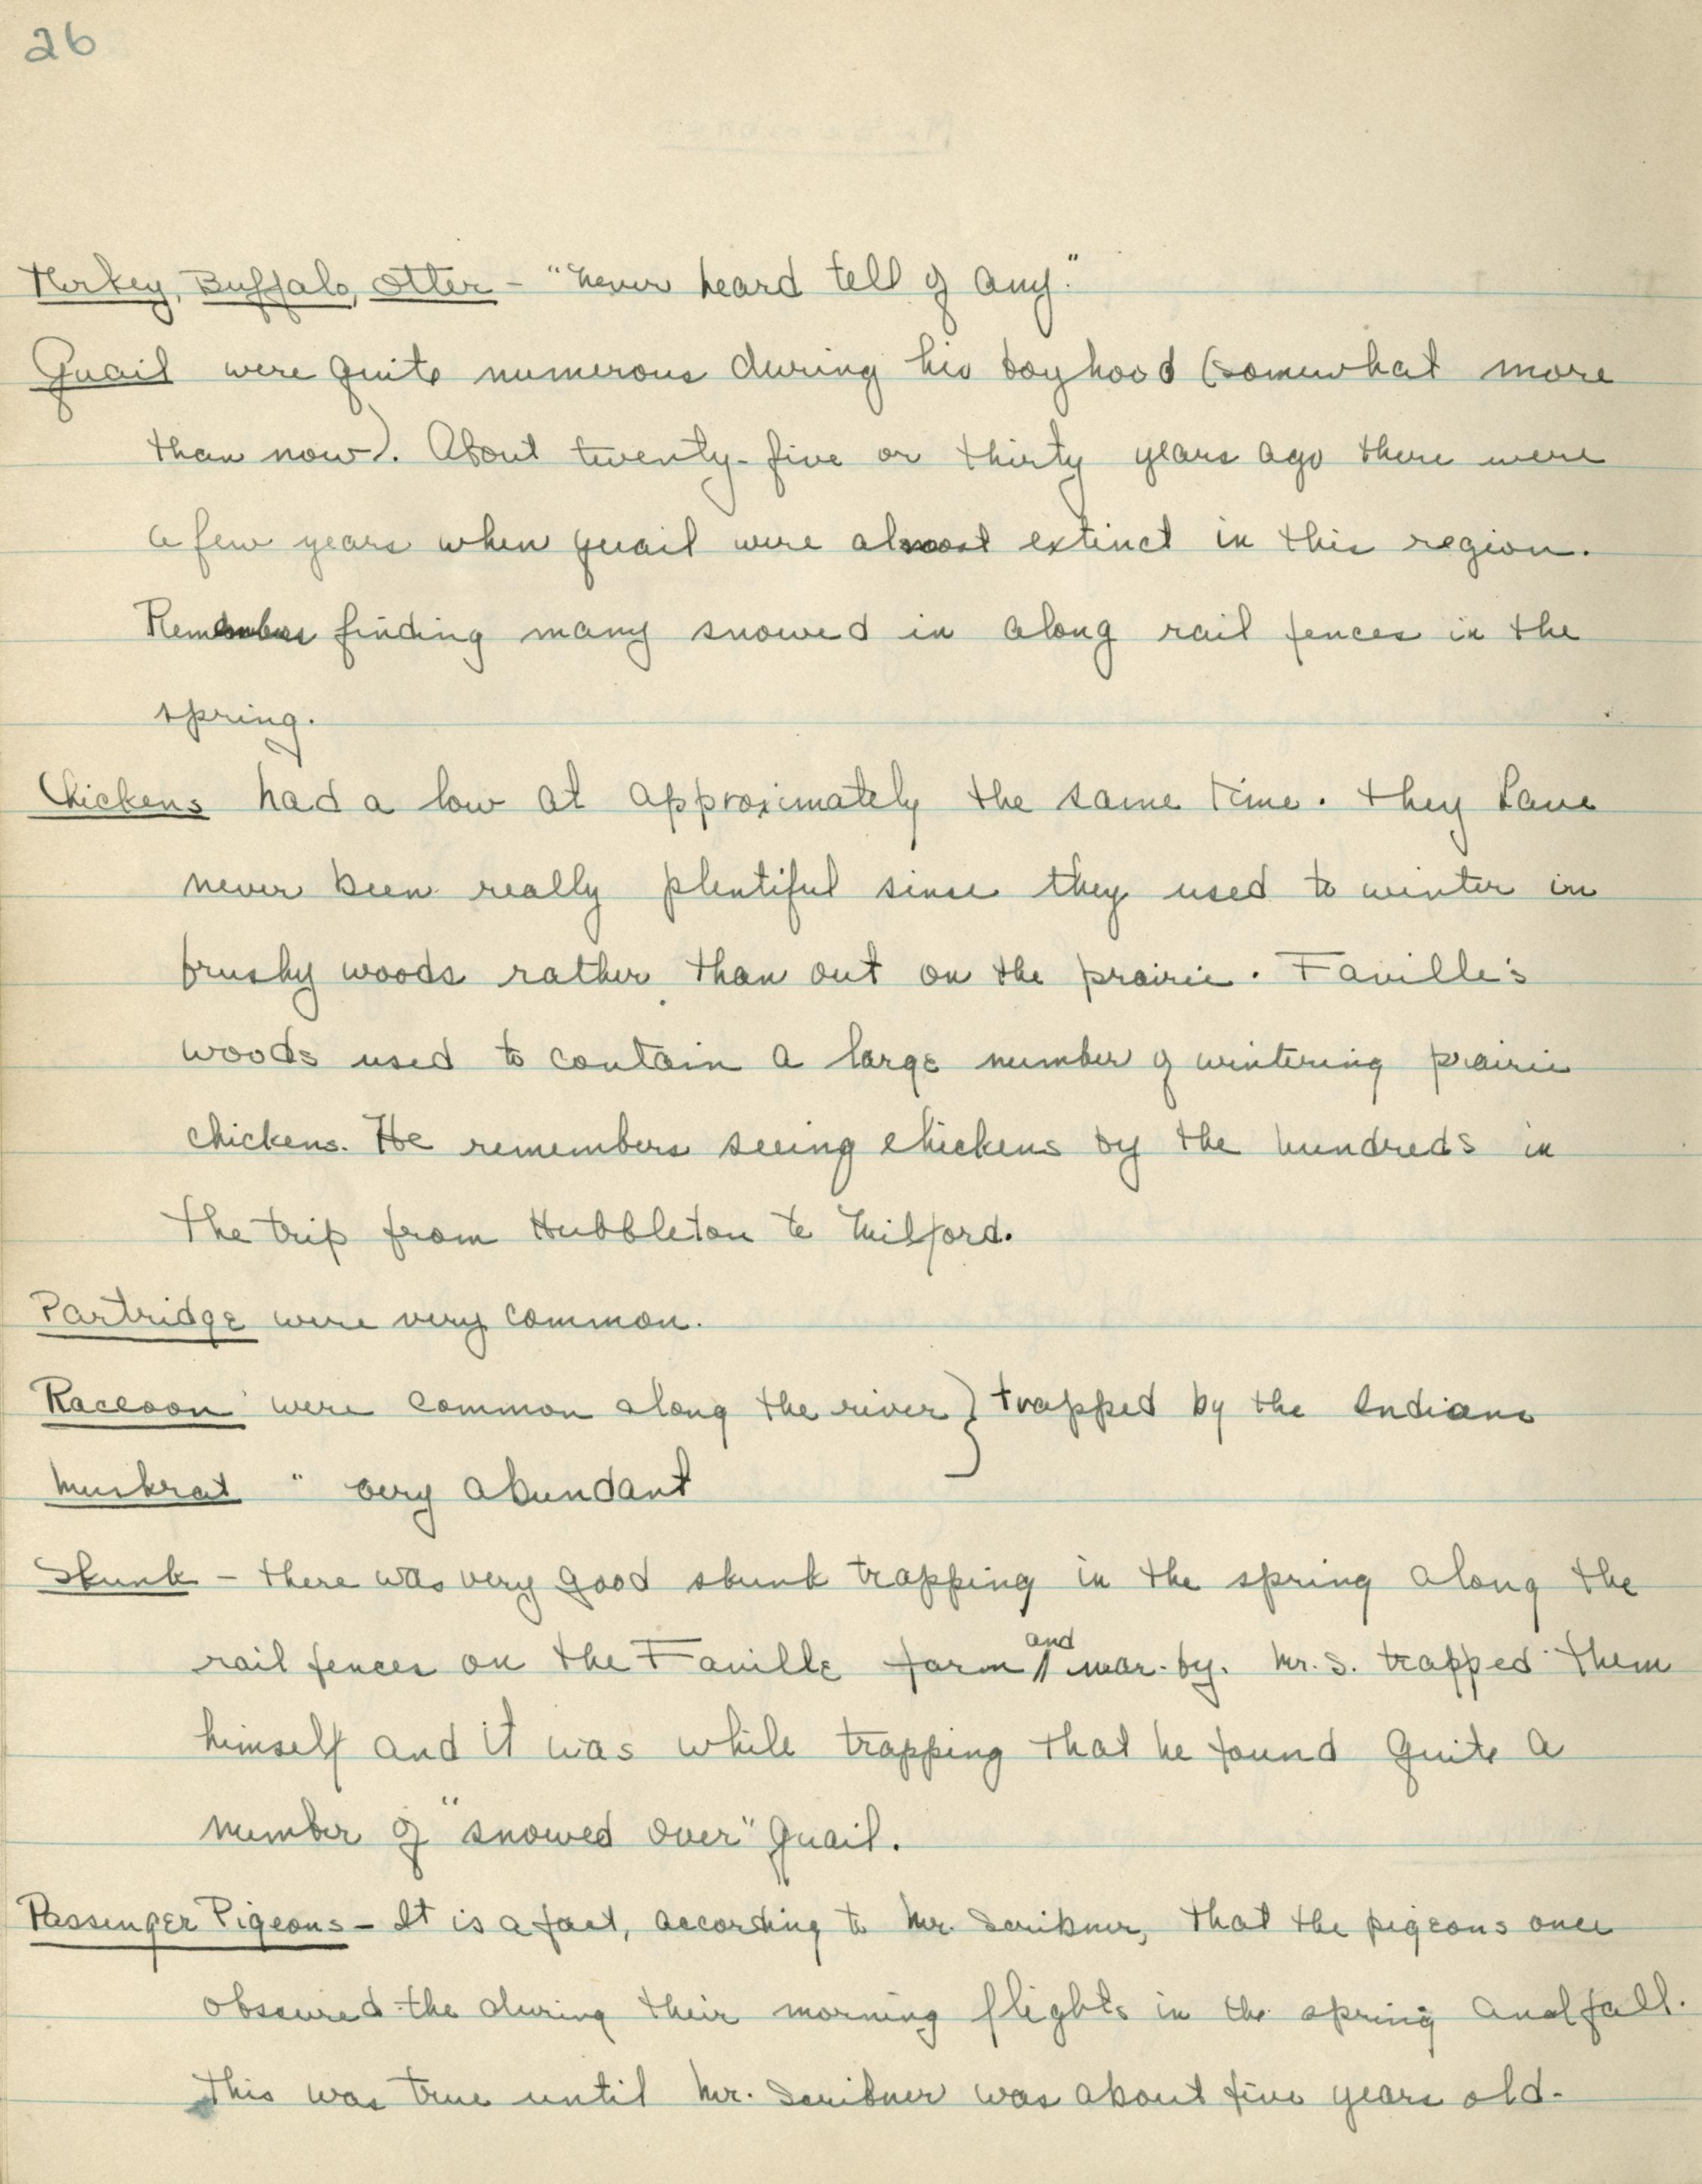 26
Turkey, Buffalo, Otter - "Never heard tell of any."
Quail were quite numerous during his boyhood (somewhat more
than now). About twenty-five or thirty years ago there were
a few years when quail were almost extinct in this region.
Remembers finding many snowed in along rail fences in the
spring.
Chickens had a low at approximately the same time. They have
never been really plentiful since they used to winter in
brushy woods rather than out on the prairie. Faville's
woods used to contain a large number of wintering prairie
chickens. He remembers seeing chickens by the hundreds in
the trip from Hubbleton to Milford.
Partridge were very common.
Raccoon were common along the river } trapped by the Indians
Muskrat " very abundant
Skunk - there was very good skunk trapping in the spring along the
rail fences on the Faville farm and near-by. Mr. S. trapped them
himself and it was while trapping that he found quite a
number of "snowed over" quail.
Passenger Pigeons - It is a fact, according to Mr. Scribner, that the pigeons once
obscured the during their morning flights in the spring and fall.
This was true until Mr. Scribner was about five years old.